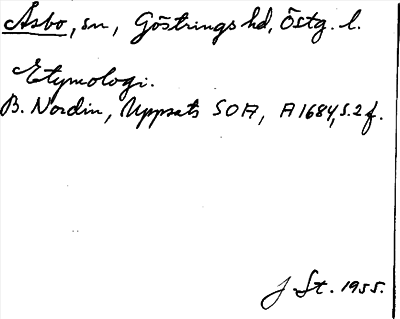 Åsbo, sn, Göstrings hd, Östg. l.
Etymologi.
B. Nordin, Uppsats SOA, A1684, s. 2 f.
J St. 1955.